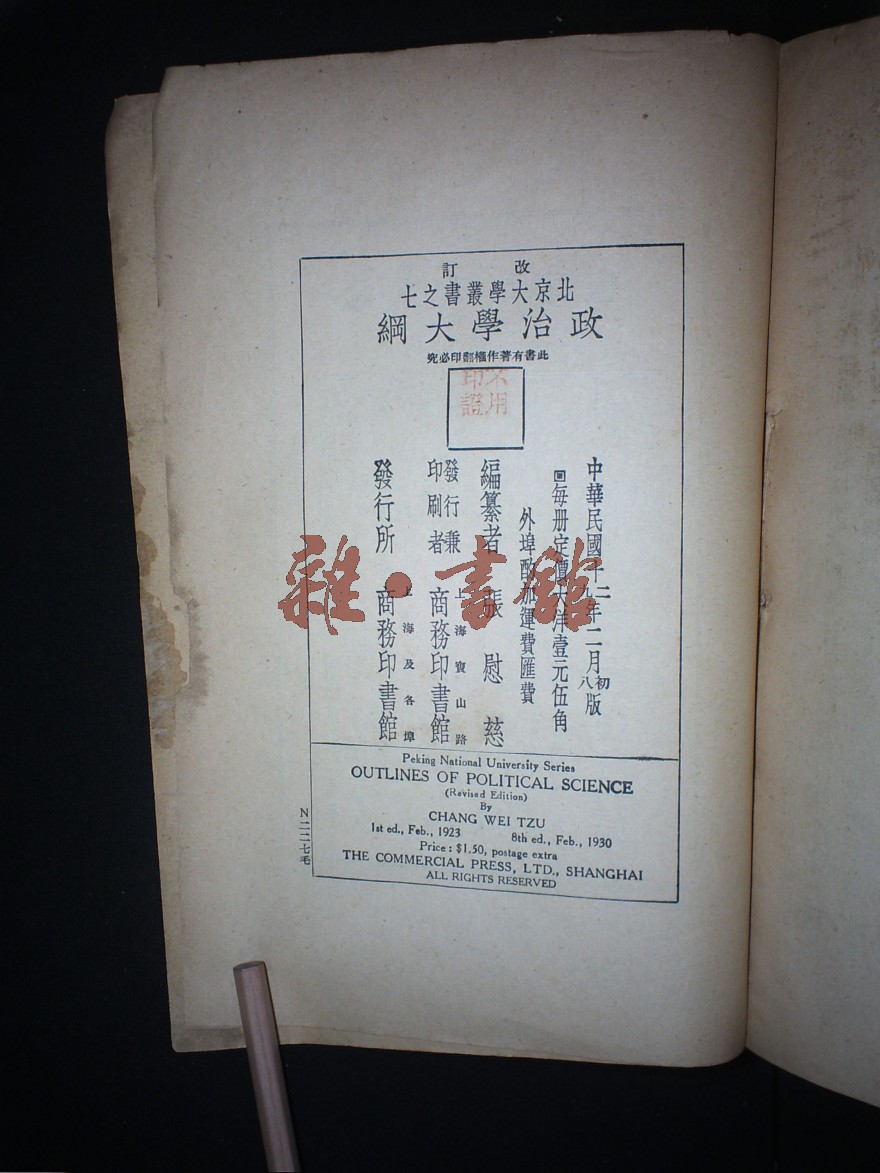 改訂
北京大學叢書之七
政治學大綱
此書有著作權翻印必究
不用
印證
中華民國十二九年二月初八版
每册定價大洋壹元伍角
外埠酌加運費匯費
編纂者 張慰慈
發行兼印刷者 上海寶山路 商務印書館
發行所 上海及各埠 商務印書館
雜·書館
Peking National University Series
OUTLINES OF POLITICAL SCIENCE
(Revised Edition)
By
CHANG WEI TZU
1st ed., Feb., 1923 8th ed., Feb., 1930
Price : $1.50, postage extra
THE COMMERCIAL PRESS, LTD., SHANGHAI
ALL RIGHTS RESERVED
N二二七毛